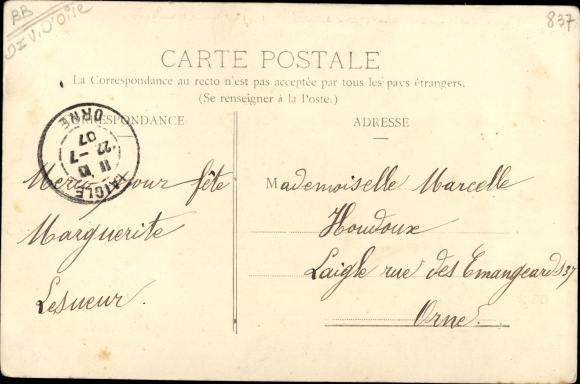 BB
837
CARTE POSTALE
La Correspondance au recto n'est pas acceptée par tous les pays étrangers.
(Se renseigner à la Poste.)
CORRESPONDANCE
ADRESSE
LAIGLE
ORNE
22 - 7
07
Mercy pour fête
Marguerite
Lesueur.
Mademoiselle Marcelle
Houdoux
Laigle rue des Emangeards 37
Orne.